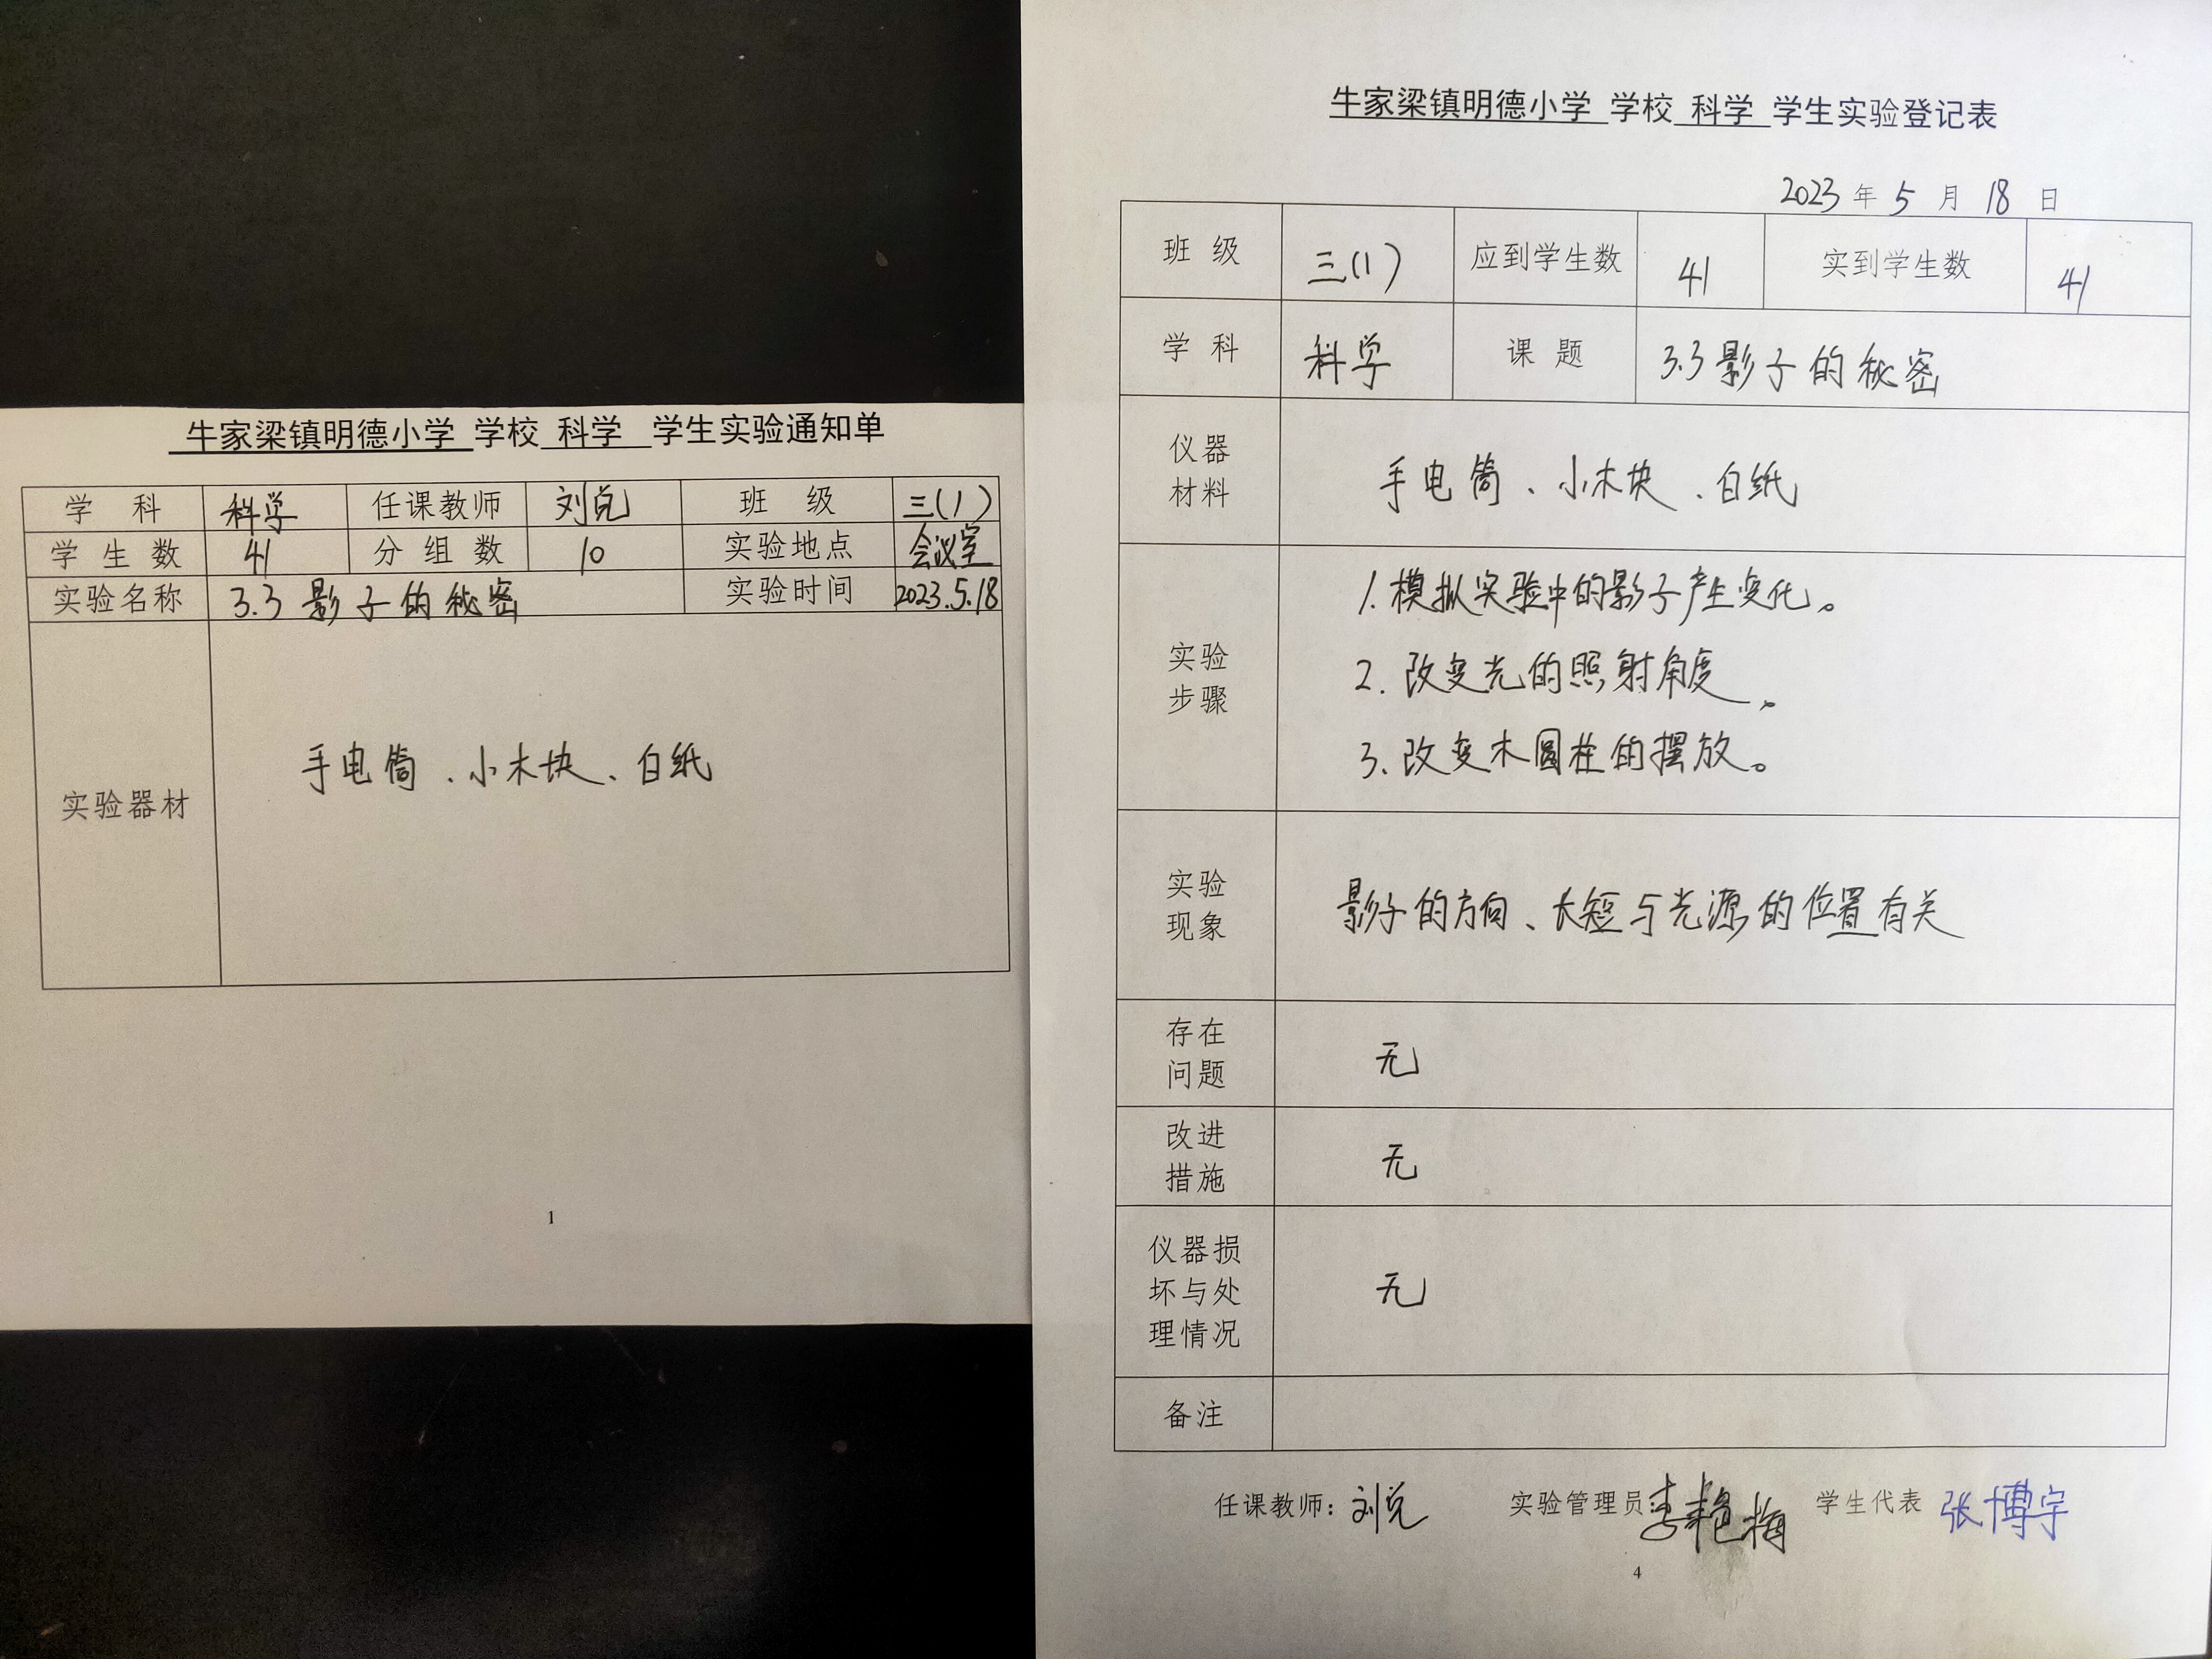 牛家梁镇明德小学 学校 科学 学生实验通知单
学 科 科学 任课教师 刘兑 班 级 三(1)
学 生 数 41 分 组 数 10 实验地点 会议室
实验名称 3.3 影子的秘密 实验时间 2023.5.18
实验器材 手电筒、小木块、白纸
1
牛家梁镇明德小学 学校 科学 学生实验登记表
2023 年 5 月 18 日
班 级 三(1) 应到学生数 41 实到学生数 41
学 科 科学 课 题 3.3影子的秘密
仪器
材料
手电筒、小木块、白纸
实验
步骤
1. 模拟实验中的影子产生变化。
2. 改变光的照射角度。
3. 改变木圆柱的摆放。
实验
现象
影子的方向、长短与光源的位置有关
存在
问题
无
改进
措施
无
仪器损
坏与处
理情况
无
备注
任课教师：刘兑 实验管理员：李艳梅 学生代表 张博宇
4